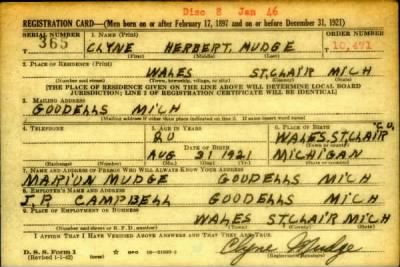 Disc 8 Jan 46
REGISTRATION CARD—(Men born on or after February 17, 1897 and on or before December 31, 1921)
SERIAL NUMBER 1. NAME (Print) ORDER NUMBER
365 CLYNE HERBERT MUDGE 10,471
(First) (Middle) (Last)
2. PLACE OF RESIDENCE (Print)
WALES ST.CLAIR MICH
(Number and street) (Town, township, village, or city) (County) (State)
[THE PLACE OF RESIDENCE GIVEN ON THE LINE ABOVE WILL DETERMINE LOCAL BOARD
JURISDICTION; LINE 2 OF REGISTRATION CERTIFICATE WILL BE IDENTICAL]
3. MAILING ADDRESS
GOODELLS MICH
(Mailing address if other than place indicated on line 2. If same insert word same)
4. TELEPHONE 5. AGE IN YEARS 6. PLACE OF BIRTH
20 WALES, ST.CLAIR
DATE OF BIRTH (Town or county)
AUG 31 1921 MICHIGAN
(Exchange) (Number) (Mo.) (Day) (Yr.) (State or country)
7. NAME AND ADDRESS OF PERSON WHO WILL ALWAYS KNOW YOUR ADDRESS
MARION MUDGE GOODELLS MICH
8. EMPLOYER'S NAME AND ADDRESS
J.P. CAMPBELL GOODELLS MICH
9. PLACE OF EMPLOYMENT OR BUSINESS
WALES ST.CLAIR MICH
(Number and street or R. F. D. number) (Town) (County) (State)
I AFFIRM THAT I HAVE VERIFIED ABOVE ANSWERS AND THAT THEY ARE TRUE.
D. S. S. Form 1
(Revised 1-1-42) (over) GPO
Clyne Mudge
(Registrant's signature)